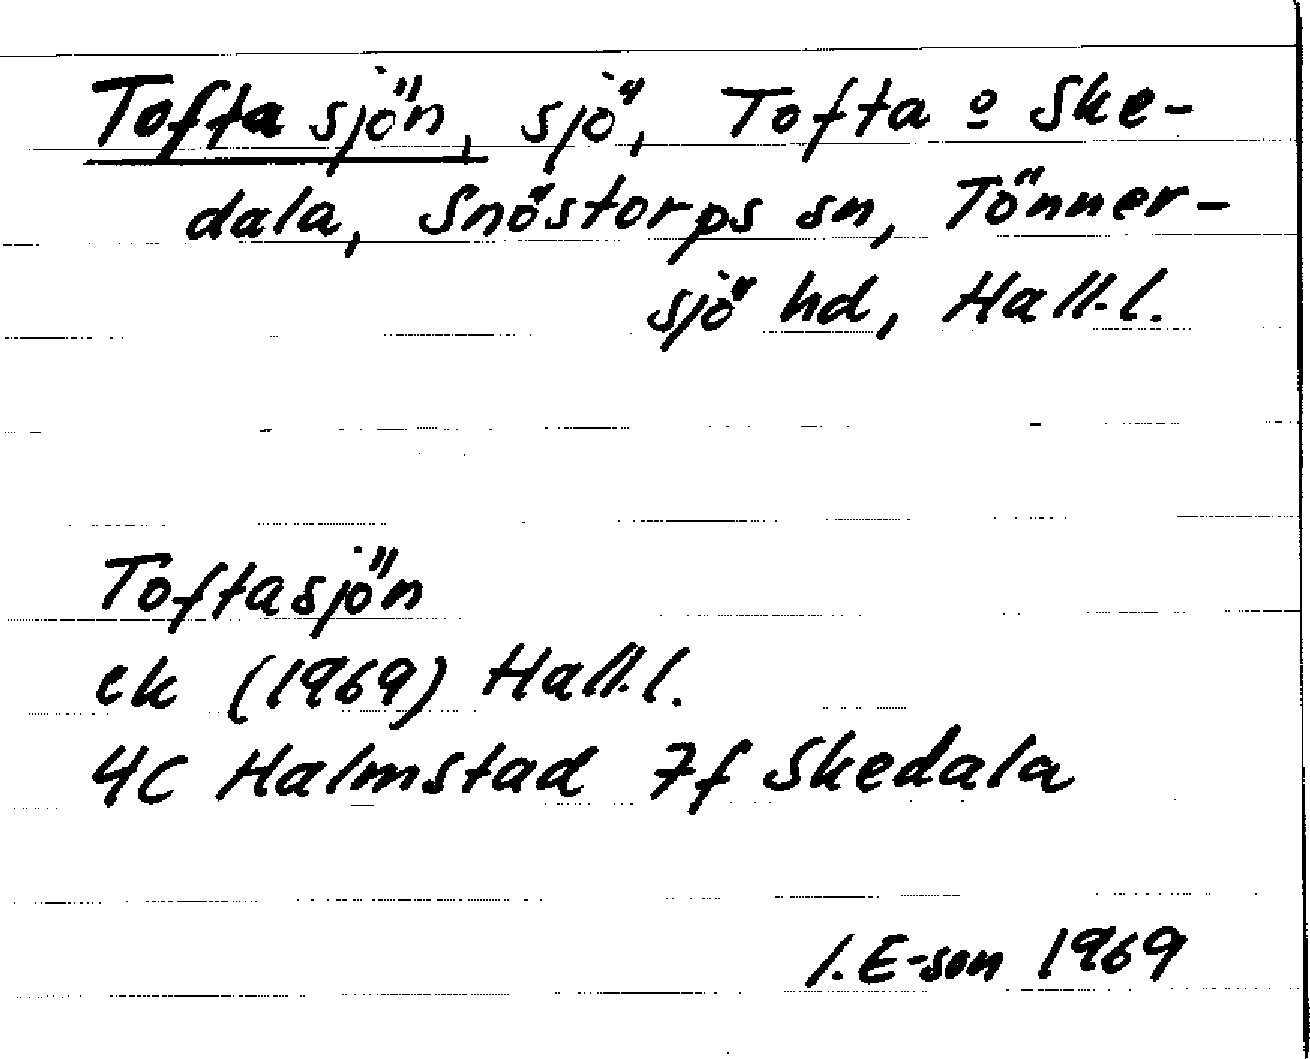 Toftasjön, sjö, Tofta o Ske-
dala, Snöstorps sn, Tönner-
sjö hd, Hall.l.
Toftasjön
ek (1969) Hall.l.
4C Halmstad 7f Skedala
I.E-son 1969